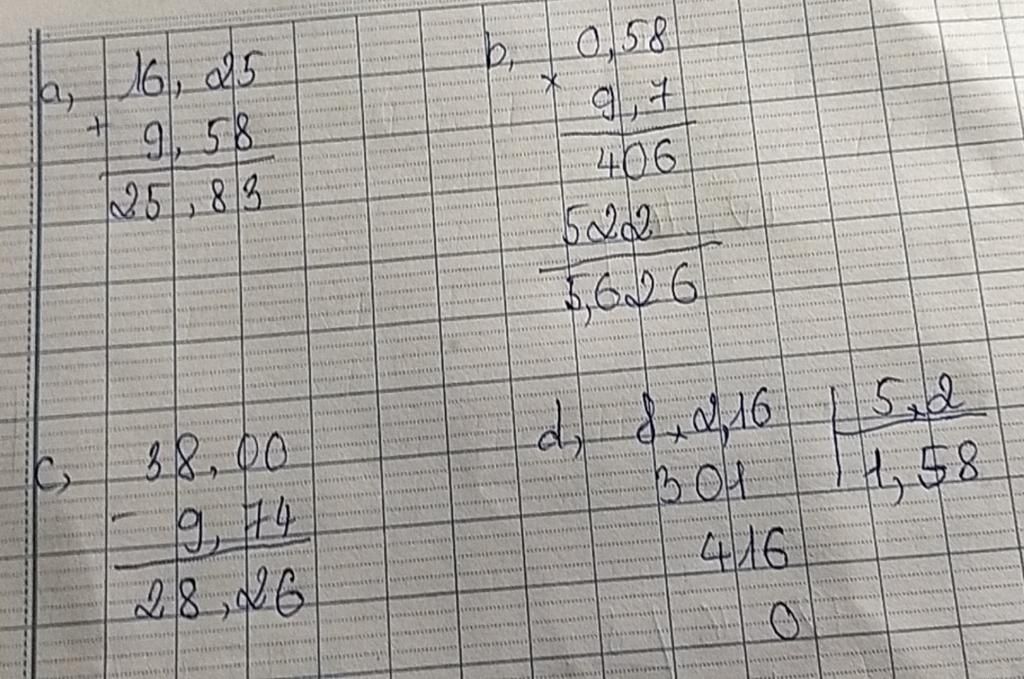 a, 16,25
+ 9,58
25,83
b, 0,58
× 9,7
406
522
5,626
c, 38,00
- 9,74
28,26
d, 8,2,16 5,2
301 1,58
416
0